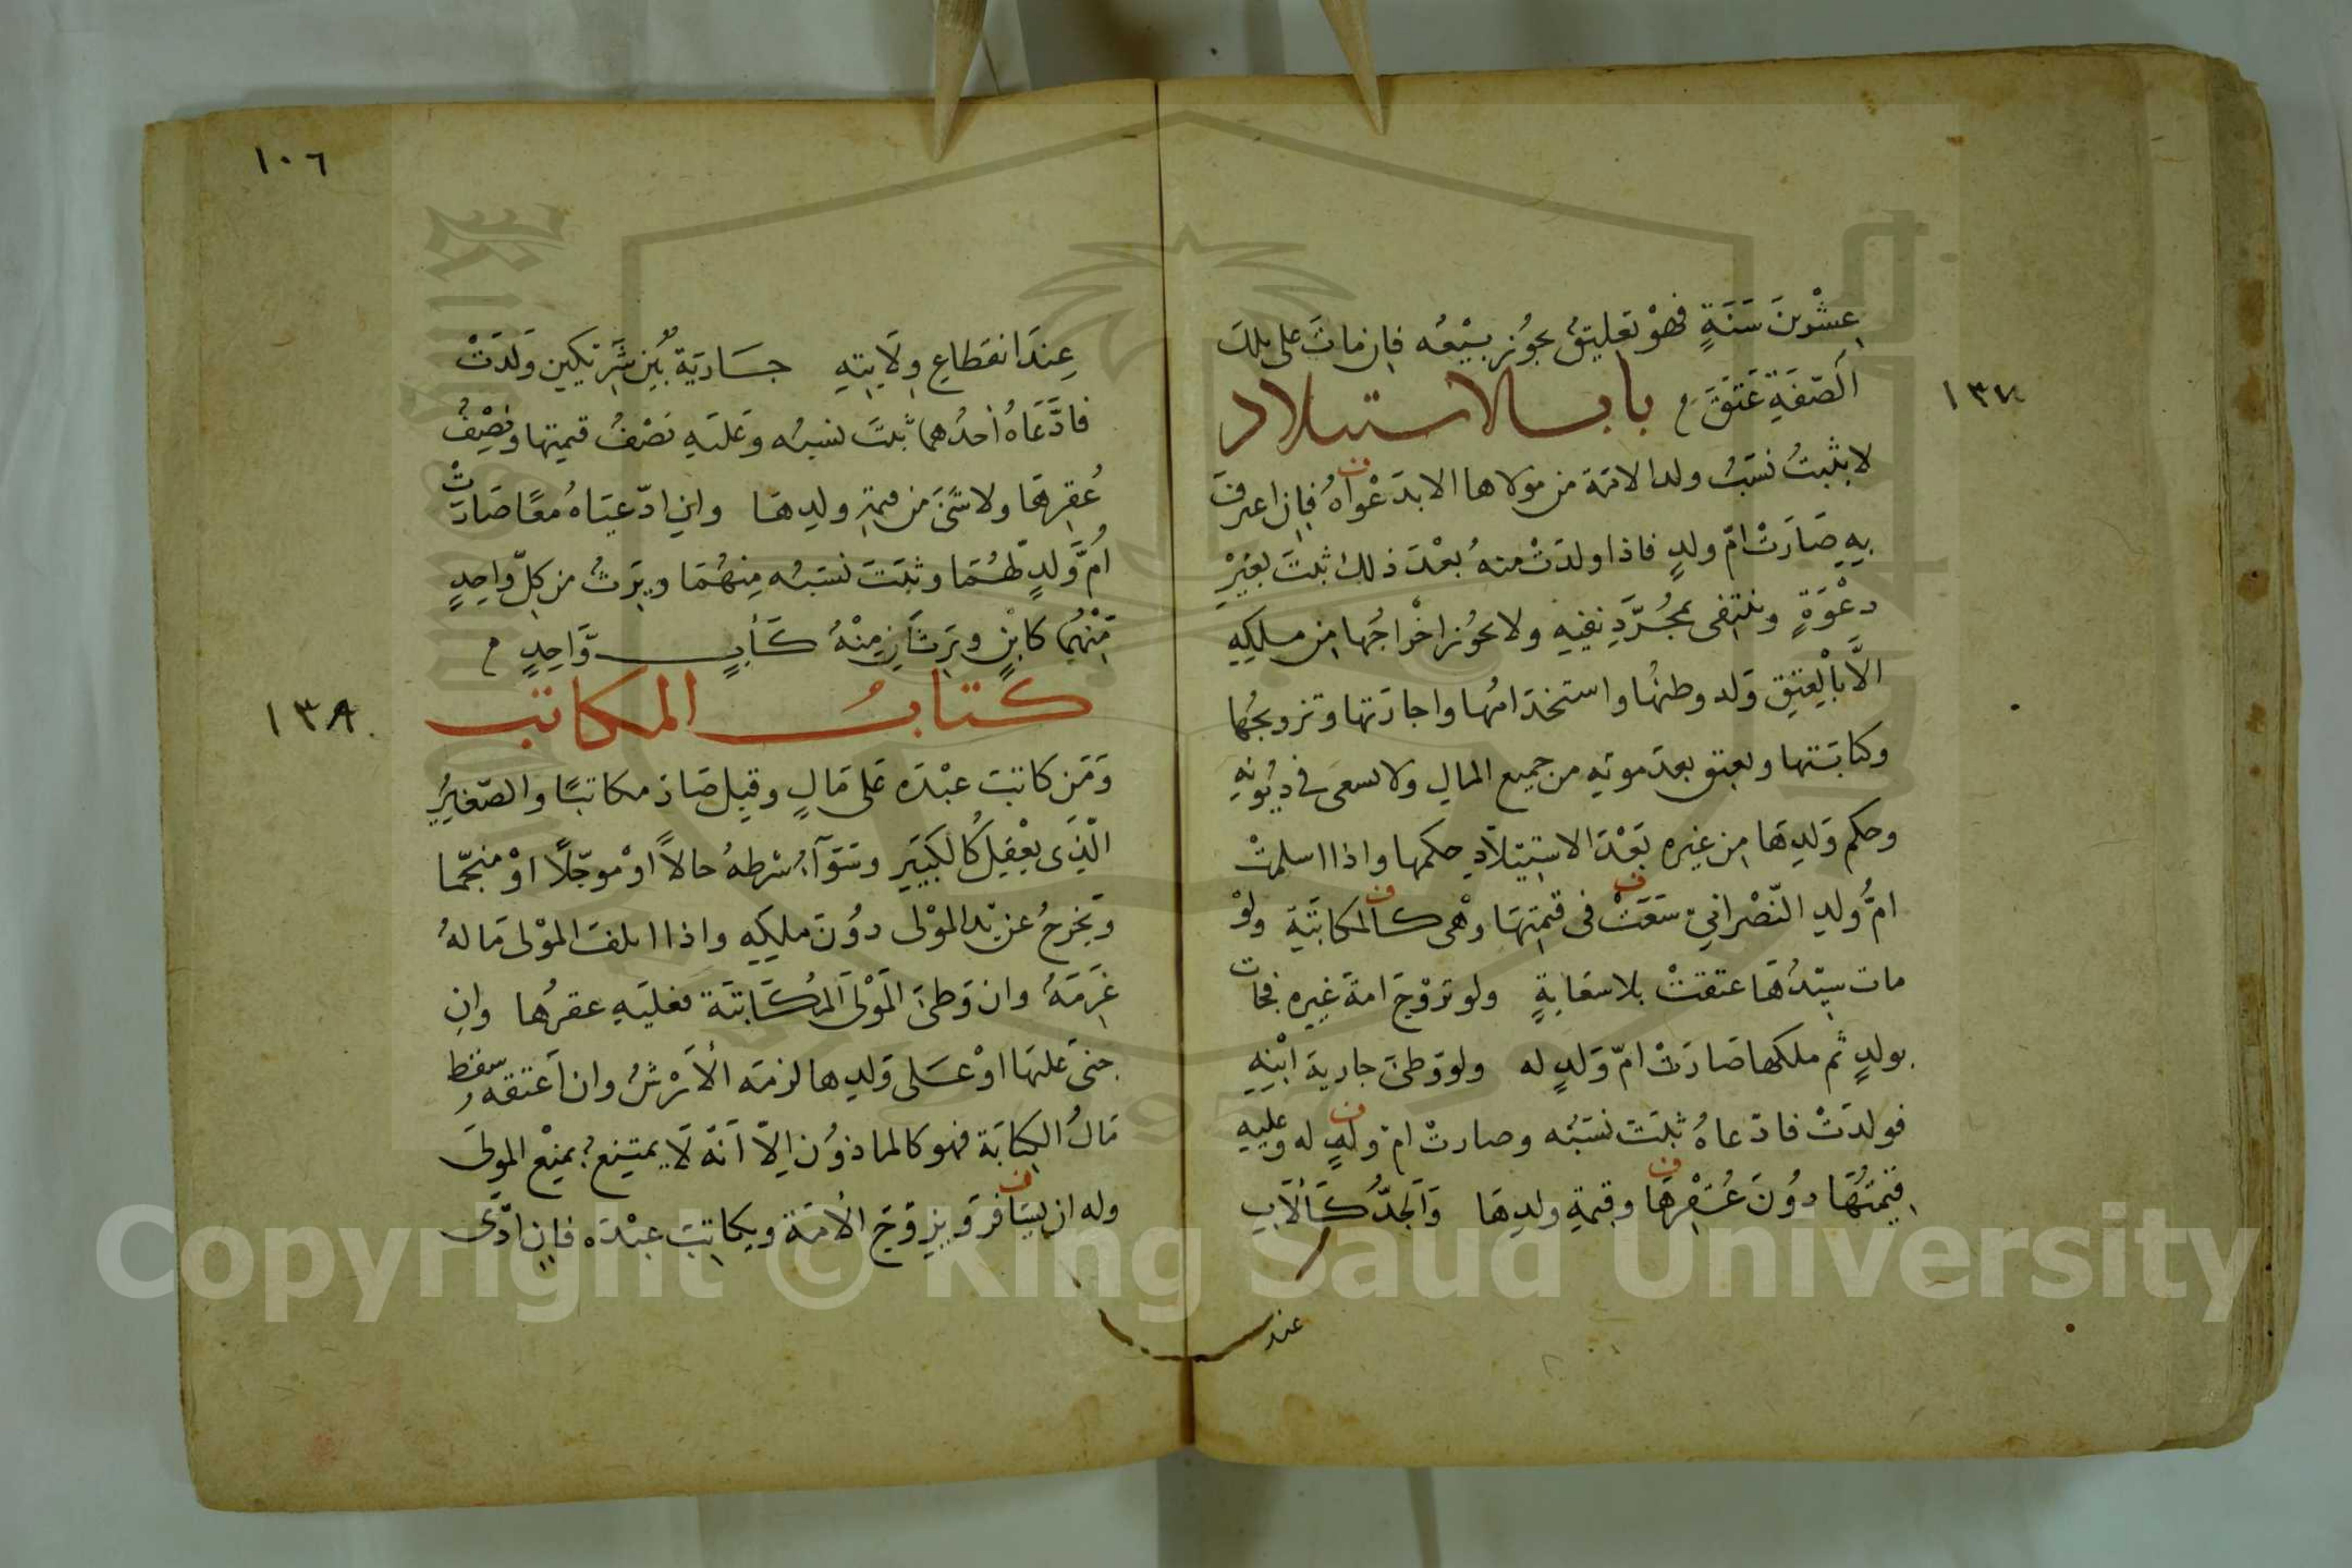 عِشْرِينَ سَنَةٍ فهوْ تعليقٌ يجوُز بيْعُه فاِن مَاتَ على تلك
الصّفَةِ عَتَقَ م باب الاستيلاد
١٣٧
لا يثبتُ نسَبُ ولد الامَة من مَولاها الا بدَعْواهُ فاِن اعترفَ
بِهِ صَارَتْ امّ ولدٍ فاذا ولدَتْ منهُ بعْدَ ذلك ثبتَ بغيْرِ
دعْوَةٍ وينتفى بمجُرَّدِ نفيِه ولا يجوُز اخْراجُها مِن ملكِهِ
الاَّ بالْعِتِقِ وَله وطئُها واستخدَامُها واجارَتها وتزويجُها
وكتابَتها وتعتق بعدَ موتِه من جميع المالِ ولا تسعَى فى ديُونِهِ
وحكم وَلدِهَا مِن غيِره بَعْدَ الاسْتِيَلاَدِ حكمها واذا اسلمتْ
امُّ ولدِ النّصْرانىّ سَعَتْ فى قيمِتهَا وهْى كالمكاتبَةِ ولوْ
مات سيّدُهَا عتقتْ بلا سعَايةٍ ولو تزوّجَ امةَ غيِره فجَات
بولدٍ ثم ملكها صَارَتْ امّ وَلدٍ له ولو وَطئَ جاريةَ ابْنِهِ
فولدَتْ فادّعاهُ ثبتَ نسَبُه وصارتْ امّ ولدٍ له وعليهِ
قيمتُهَا دوُنَ عُقْرِهَا وقيمةِ ولدِهَا وَالجَدُّ كَالأَبِ
عند
١٠٦
عِندَ انقطاعِ وِلاَيتِهِ جَارِيَةٌ بَيْنَ شَرِيكين وَلدَتْ
فادَّعَاهُ أحدُهما ثبتَ نسبُه وَعَليَهِ نصْفُ قيمتِها ونِصْفُ
عُقرِهَا ولا شَئَ من قيمةِ ولدِهَا وانِ ادّعيَاهُ مَعًا صَارَتْ
أُمَّ وَلدٍ لهُمَا وثبَتَ نسَبُه مِنهُمَا ويَرِثُ من كلِّ وَاحِدٍ
مّنْهُما كابْنٍ ويَرِثَانِ مِنْهُ كَأبٍ وَّاحِدٍ م
كتابُ المكاتب
١٣٨
وَمَن كاتبَ عبْدَه عَلى مَالٍ وقَبِلَ صَارَ مكاتبًا والصّغِيُر
الّذِى يعْقِلُ كالكبَيِر وسَوَآءٌ شرطهُ حالاً اوْ موجّلاً اوْ منجّما
وَيخرجُ عن يْد الموْلى دوُنَ ملكِهِ واذا اتلفَ الموْلى مَالهُ
غَرِمَهُ وان وَطئَ المَوْلَى المكَاتبَة فعليَهِ عقرُها وانِ
جَنىَ عَليَها اوْ عَلى وَلدِها لزمَه الأَرْشُ وان اَعتقه سقط
مَالُ الكِتابَة وهو كالماذوُن اِلاّ اَنّه لَا يمتنِع بمنْع المولىَ
وله ان يسَافرَ وَيزوّجَ الأمَة ويكاتِبَ عبْدَه فاِن ادّى